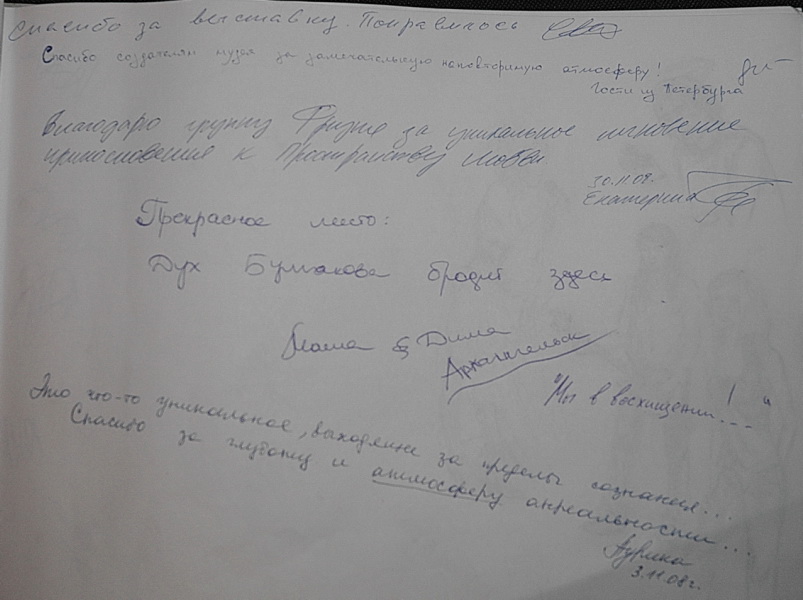 Спасибо за выставку. Понравилось
Спасибо создателям музея за замечательную неповторимую атмосферу!
Гости из Петербурга
Благодарю группу за уникальное мгновение
прикосновения к Пространству Любви
30.11.08г.
Екатерина
Прекрасное место:
Дух Булгакова бродит здесь
Маша & Дима
Архангельск
"Мы в восхищении!..."
Это что-то уникальное, выходящие за пределы сознания...
Спасибо за глубину и атмосферу анреальности...
3.11.08г.